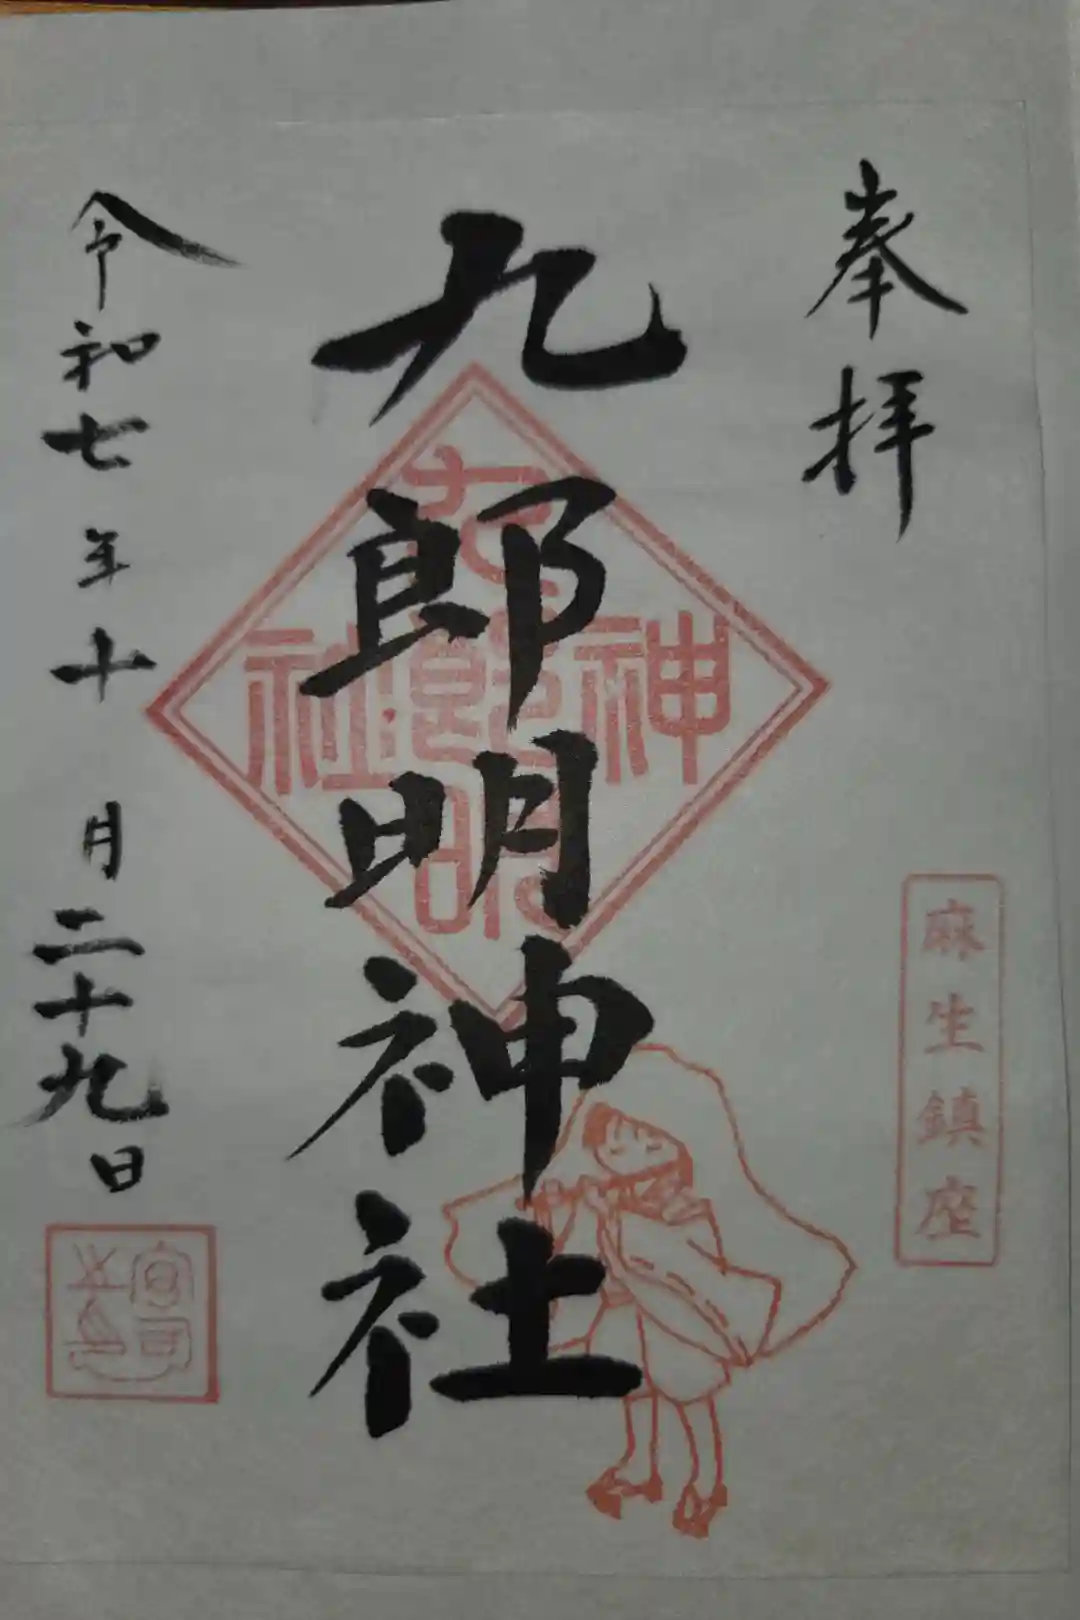 奉拝
麻生鎮座
九郎明神社
九郎明
神
社
令和七年十月二十九日